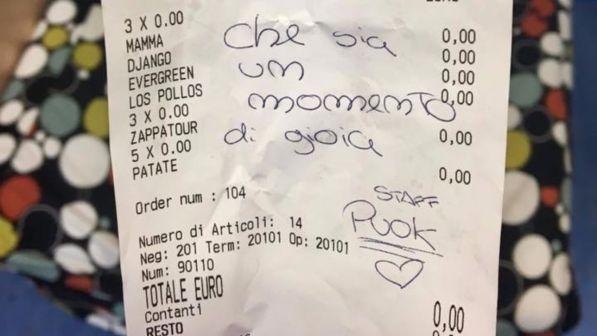 3 X 0.00
MAMMA 0,00
DJANGO 0,00
EVERGREEN 0,00
LOS POLLOS 0,00
3 X 0.00
ZAPPATOUR 0,00
5 X 0.00
PATATE 0,00
che sia
un
momento
di gioia
Order num : 104
STAFF
PUOK
♡
Numero di Articoli: 14
Neg: 201 Term: 20101 Op: 20101
Num: 90110
TOTALE EURO 0,00
Contanti 0,00
RESTO